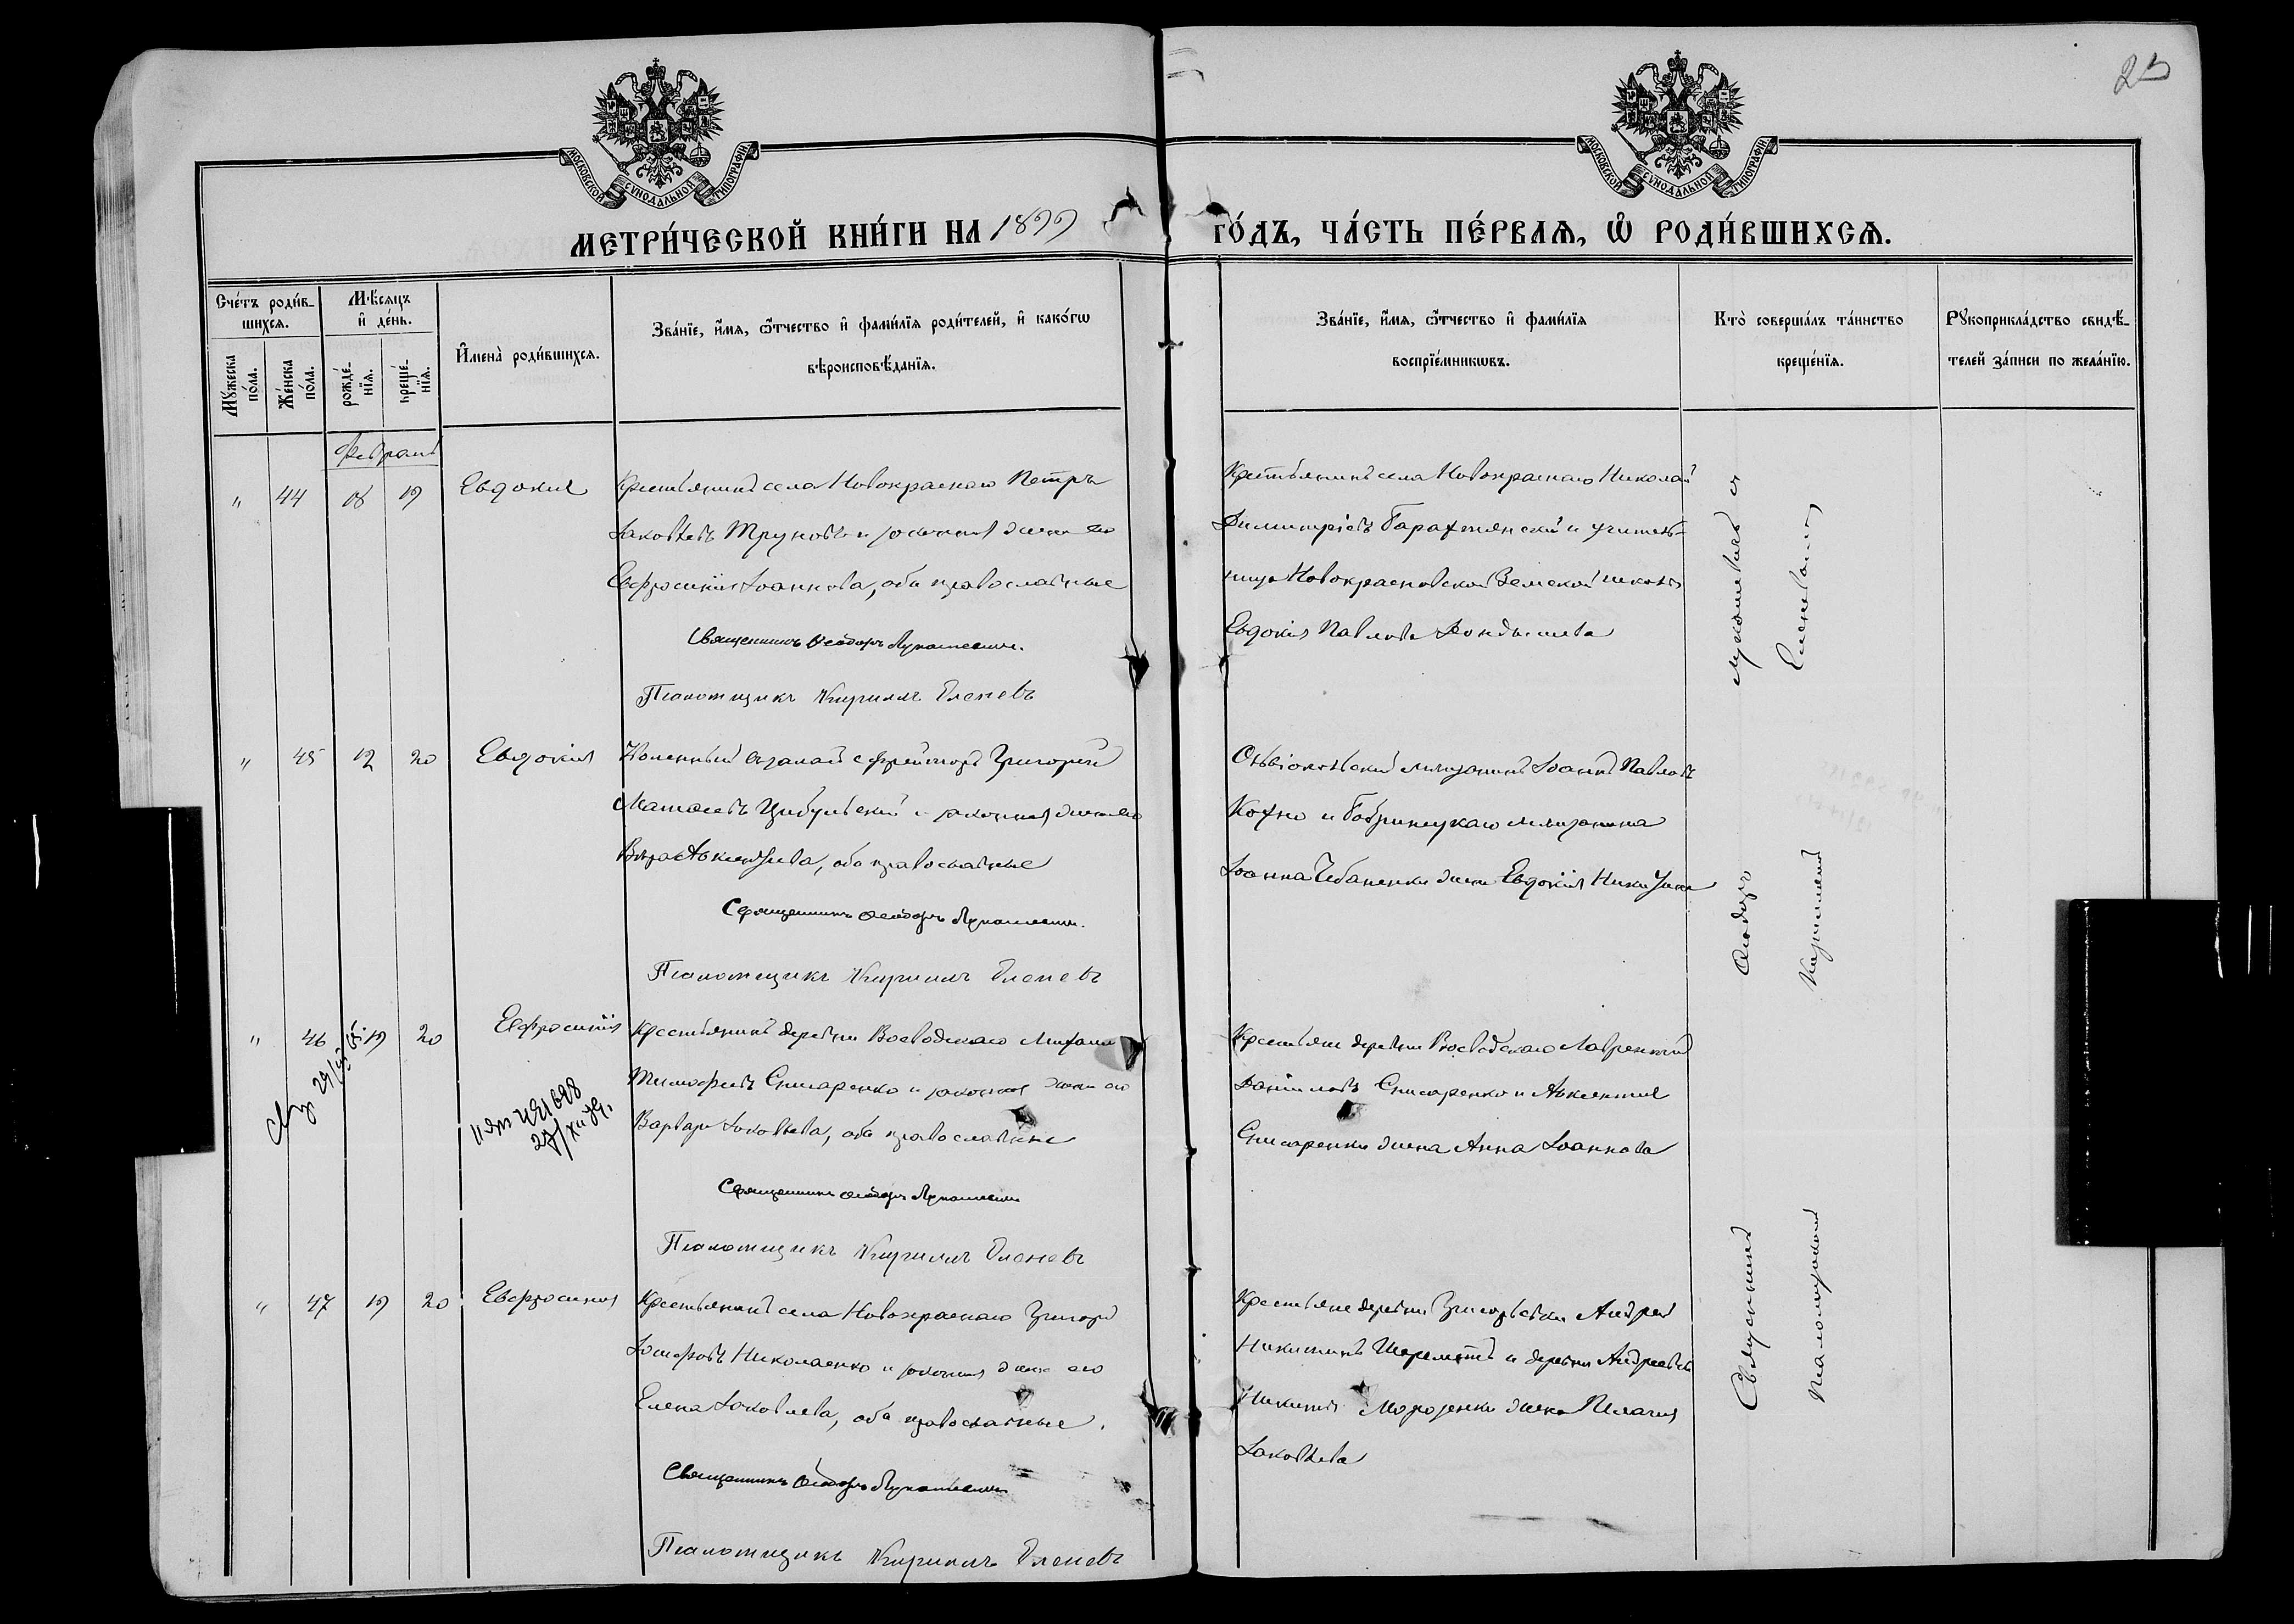 25
МОСКОВСКОЙ СѴНОДАЛЬНОЙ ТИПОГРАФІИ
МОСКОВСКОЙ СѴНОДАЛЬНОЙ ТИПОГРАФІИ
МЕТРИ́ЧЕСКОЙ КНИ́ГИ НА 1899 ГО́ДЪ, ЧА́СТЬ ПЕ́РВАѦ, Ѡ РОДИ́ВШИХСѦ.
Сче́тъ роди́в-
шихсѧ.
Мꙋжеска по́ла.
Же́нска по́ла.
Мѣ́сѧцъ
и҆ де́нь.
рожде́-
нїѧ.
креще́-
нїѧ.
И҆мена̀ роди́вшихсѧ.
Зва́нїе, и҆́мѧ, ѻ҆́тчество и҆ фами́лїѧ роди́телей, и҆ како́гѡ
вѣроисповѣ́данїѧ.
Зва́нїе, и҆́мѧ, ѻ҆́тчество и҆ фами́лїѧ
воспрїе́мникѡвъ.
Кто̀ соверша́лъ та́инство
креще́нїѧ.
Рꙋкоприкла́дство свидѣ́-
телей за́писи по жела́нїю.
Февраль
" 44 18 19 Евдокия
Крестьянинъ села Новокраснаго Петръ
Іаковлевъ Труновъ и законная жена его
Евфросинія Іоаннова, оба православные
Священникъ Ѳеодоръ Лукашевичъ.
Псаломщикъ Кириллъ Еленевъ
Крестьянинъ села Новокраснаго Николай
Димитріевъ и учитель-
ница Новокрасновской Земской школы
Евдокія Павлова
Лукашевичъ съ
Еленевымъ
" 45 12 20 Евдокия
Григорій
Матѳеевъ Цибульскій и законная жена его
Вѣра Авксентіева, оба православные
Священникъ Ѳеодоръ Лукашевичъ.
Псаломщикъ Кириллъ Еленевъ
Ольвіопольскій мѣщанинъ Іоаннъ Павловъ
Кохно и Бобринецкаго мѣщанина
Іоанна Чебаненки жена Евдокія
Ѳеодоръ
Кириллъ
" 46 19 20 Евфросинія
Крестьянинъ деревни Воеводскаго Михаилъ
Тимофеевъ Снисаренко и законная жена его
Варвара Іаковлева, оба православные
Священникъ Ѳеодоръ Лукашевичъ
Псаломщикъ Кириллъ Еленевъ
Крестьяне деревни Воеводскаго Лаврентій
Даніиловъ Снисаренко и Авксентія
Снисаренки жена Анна Іоаннова
" 47 19 20 Евфросиния
Крестьянинъ села Новокраснаго Григорій
Іосифовъ Николаенко и законная жена его
Елена Іаковлева, оба православные.
Священникъ Ѳеодоръ Лукашевичъ
Псаломщикъ Кириллъ Еленевъ
Крестьяне деревни Григорьевки Андрей
Никитинъ Шереметъ и деревни Андреевки
Никиты Морозенки жена Пелагия
Іаковлева
Священникъ
Псаломщикъ